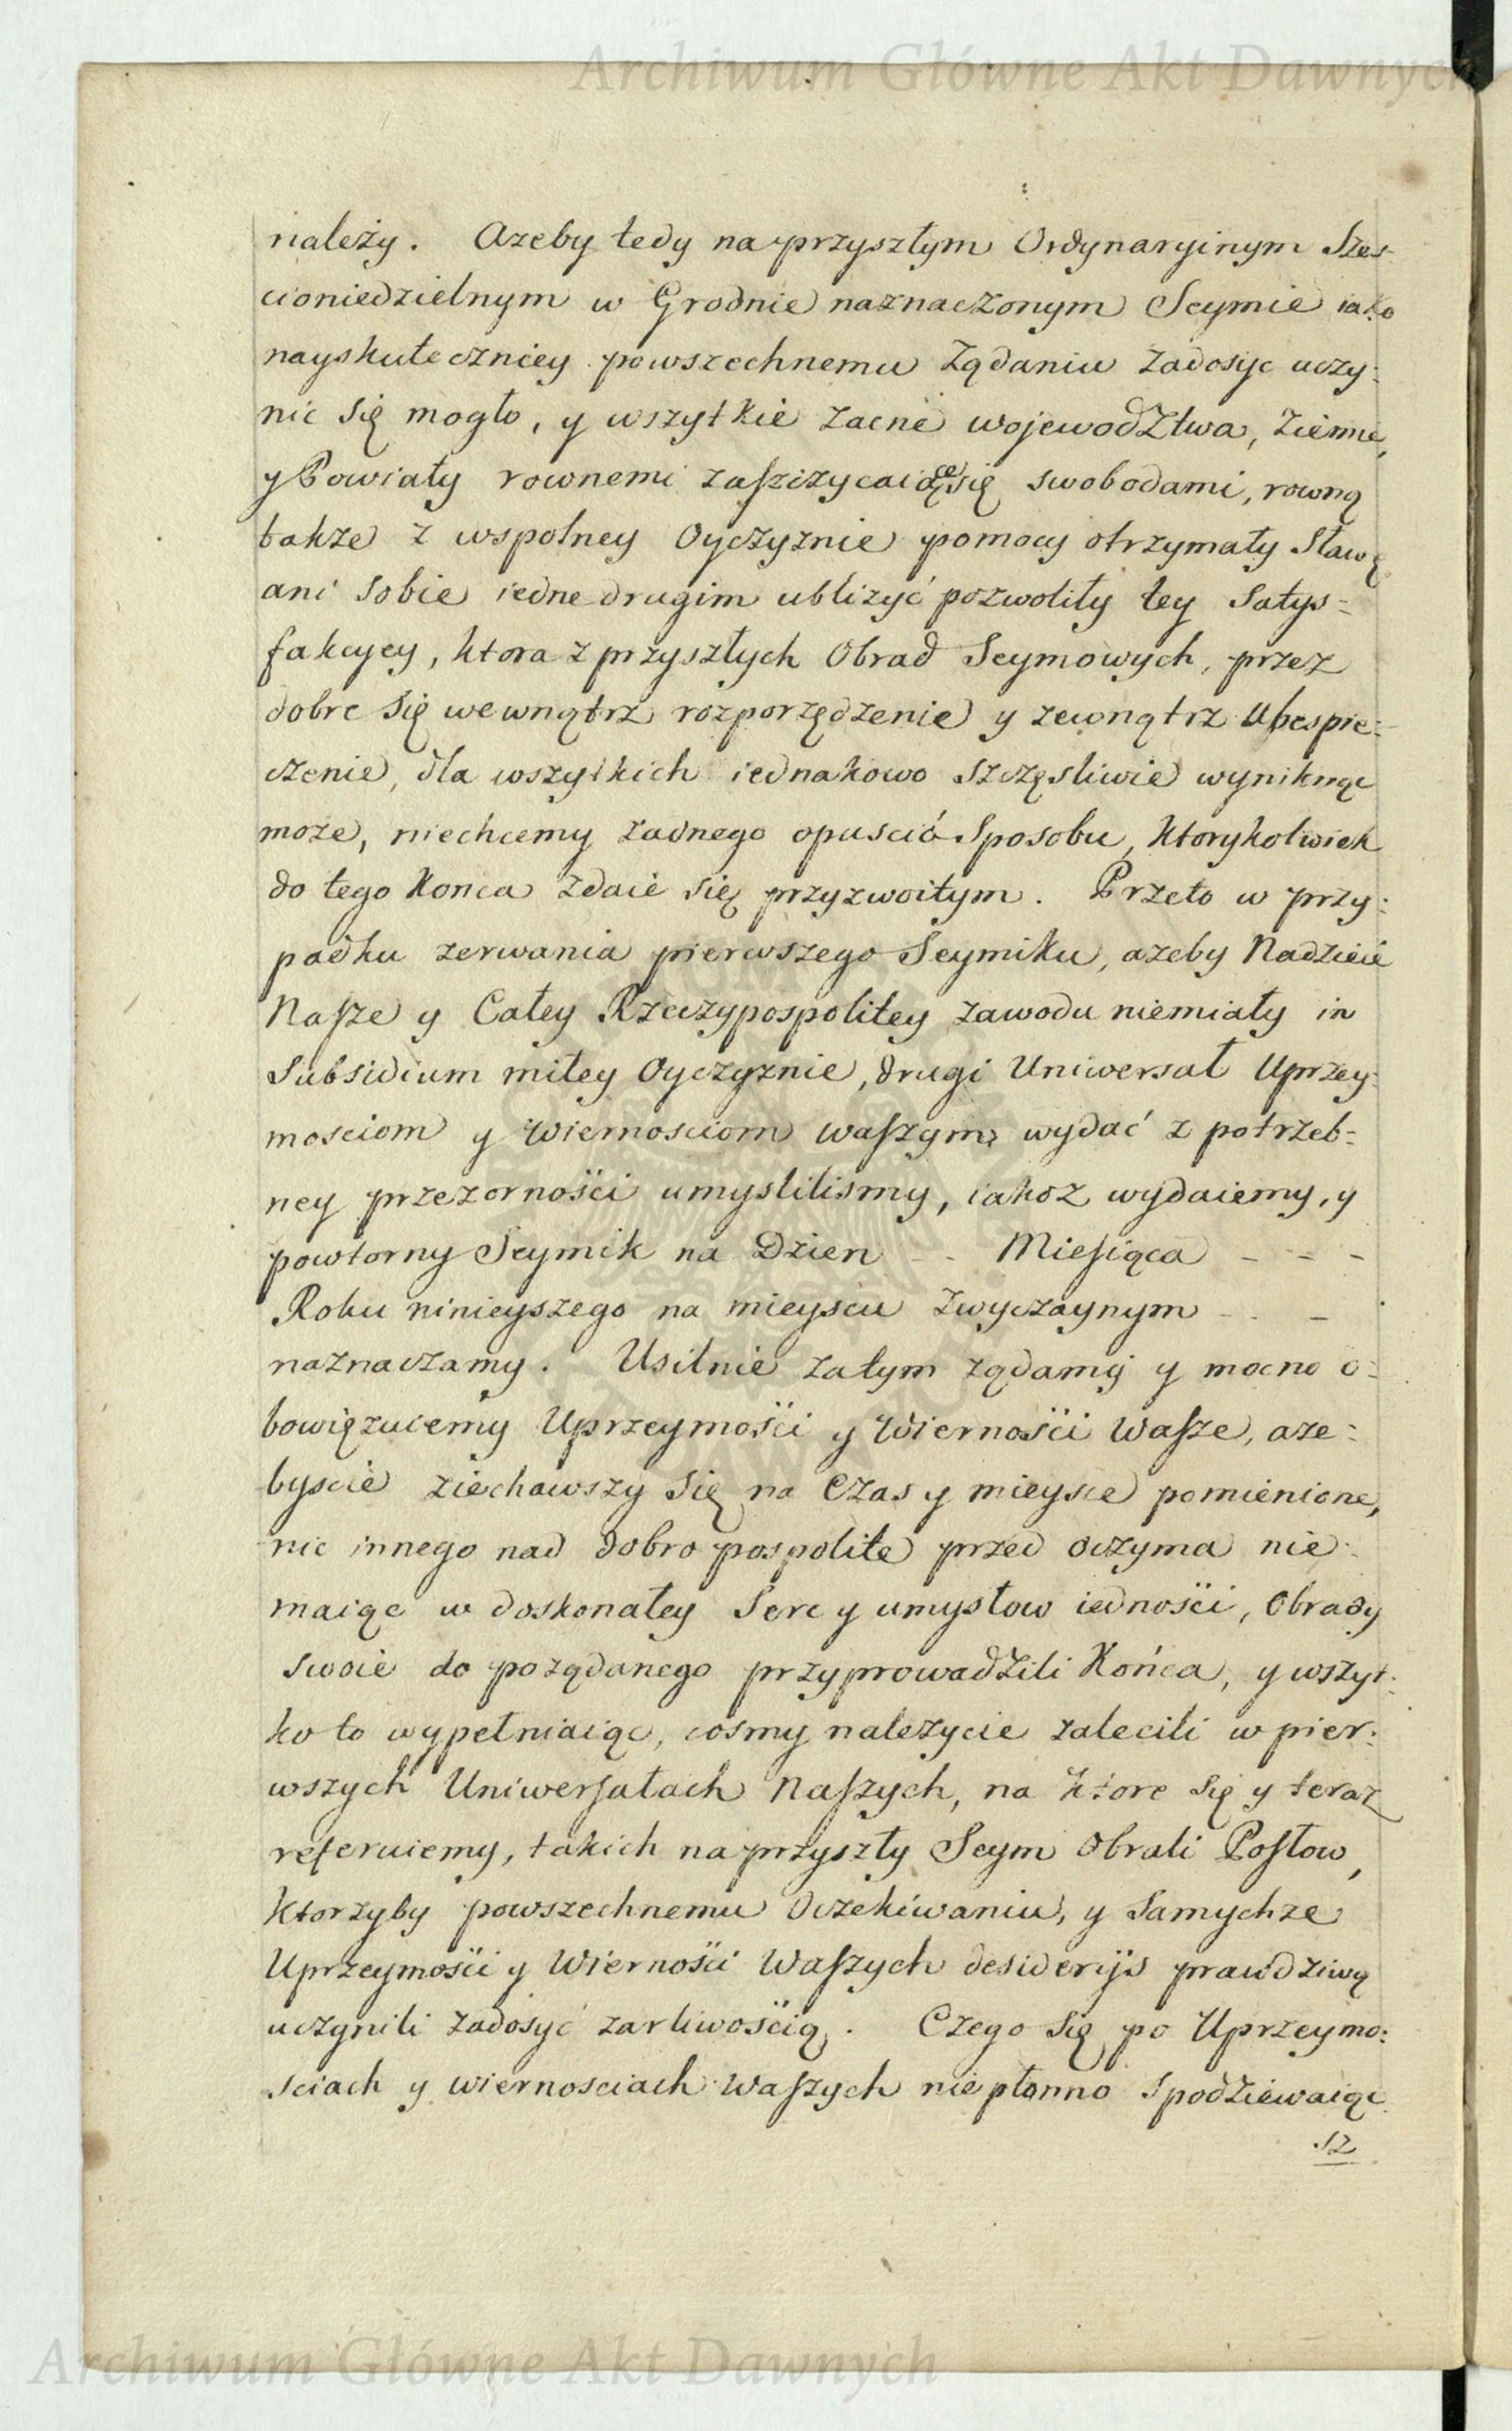 Archiwum Główne Akt Dawnych
należy. Azeby tedy na przyszłym Ordynaryinym Szes-
cioniedzielnym w Grodnie naznaczonym Seymie iako
nayskuteczniey powszechnemu żądaniu zadosyc uczy:
nic się mogło, y wszytkie zacne wojewodztwa, ziemie,
y Powiaty rownemi zaszczycaiące się swobodami, rowną
takze z wspolney Oyczyznie pomocy otrzymały Sławę
ani sobie iedne drugim ublizyć pozwoliły tey Satys=
fakcyey, ktora z przyszłych Obrad Seymowych, przez
dobre się wewnątrz rozporządzenie y zewnątrz Ubespie=
czenie, dla wszytkich iednakowo szczęsliwie wyniknąc
może, niechcemy żadnego opuscić Sposobu, ktorykolwiek
do tego konca zdaie się przyzwoitym. Przeto w przy:
padku zerwania pierwszego Seymiku, azeby Nadzieie
Nasze y Całey Rzeczypospolitey zawodu niemiały in
Subsidium miłey Oyczyznie, drugi Uniwersał Uprzey-
mosciom y Wiernosciom waszym, wydać z potrzeb=
ney przezorności umyslilismy, iakoz wydaiemy, y
powtorny Seymik na Dzien - - Miesiąca - - -
Roku ninieyszego na mieyscu zwyczaynym - - -
naznaczamy. Usilnie zatym ządamy y mocno o=
bowięzuiemy Uprzeymości y Wierności Wasze, aze=
byscie ziechawszy się na Czas y mieysce pomienione,
nic innego nad dobro pospolite przed oczyma nie-
maiąc w doskonałey Serc y umysłow iedności, Obrady
swoie do pożądanego przyprowadzili Końca, y wszyt-
ko to wypełniaiąc, cosmy nalezycie zalecili w pier:
wszych Uniwersałach Naszych, na ktore się y teraz
referuiemy, takich na przyszły Seym Obrali Posłow,
ktorzyby powszechnemu Oczekiwaniu, y Samychze
Uprzeymości y Wierności Waszych desideryis prawdziwą
uczynili zadosyć zarliwością. Czego się po Uprzeymo:
sciach y wiernosciach Waszych niepłonno spodziewaiąc
12
Archiwum Główne Akt Dawnych